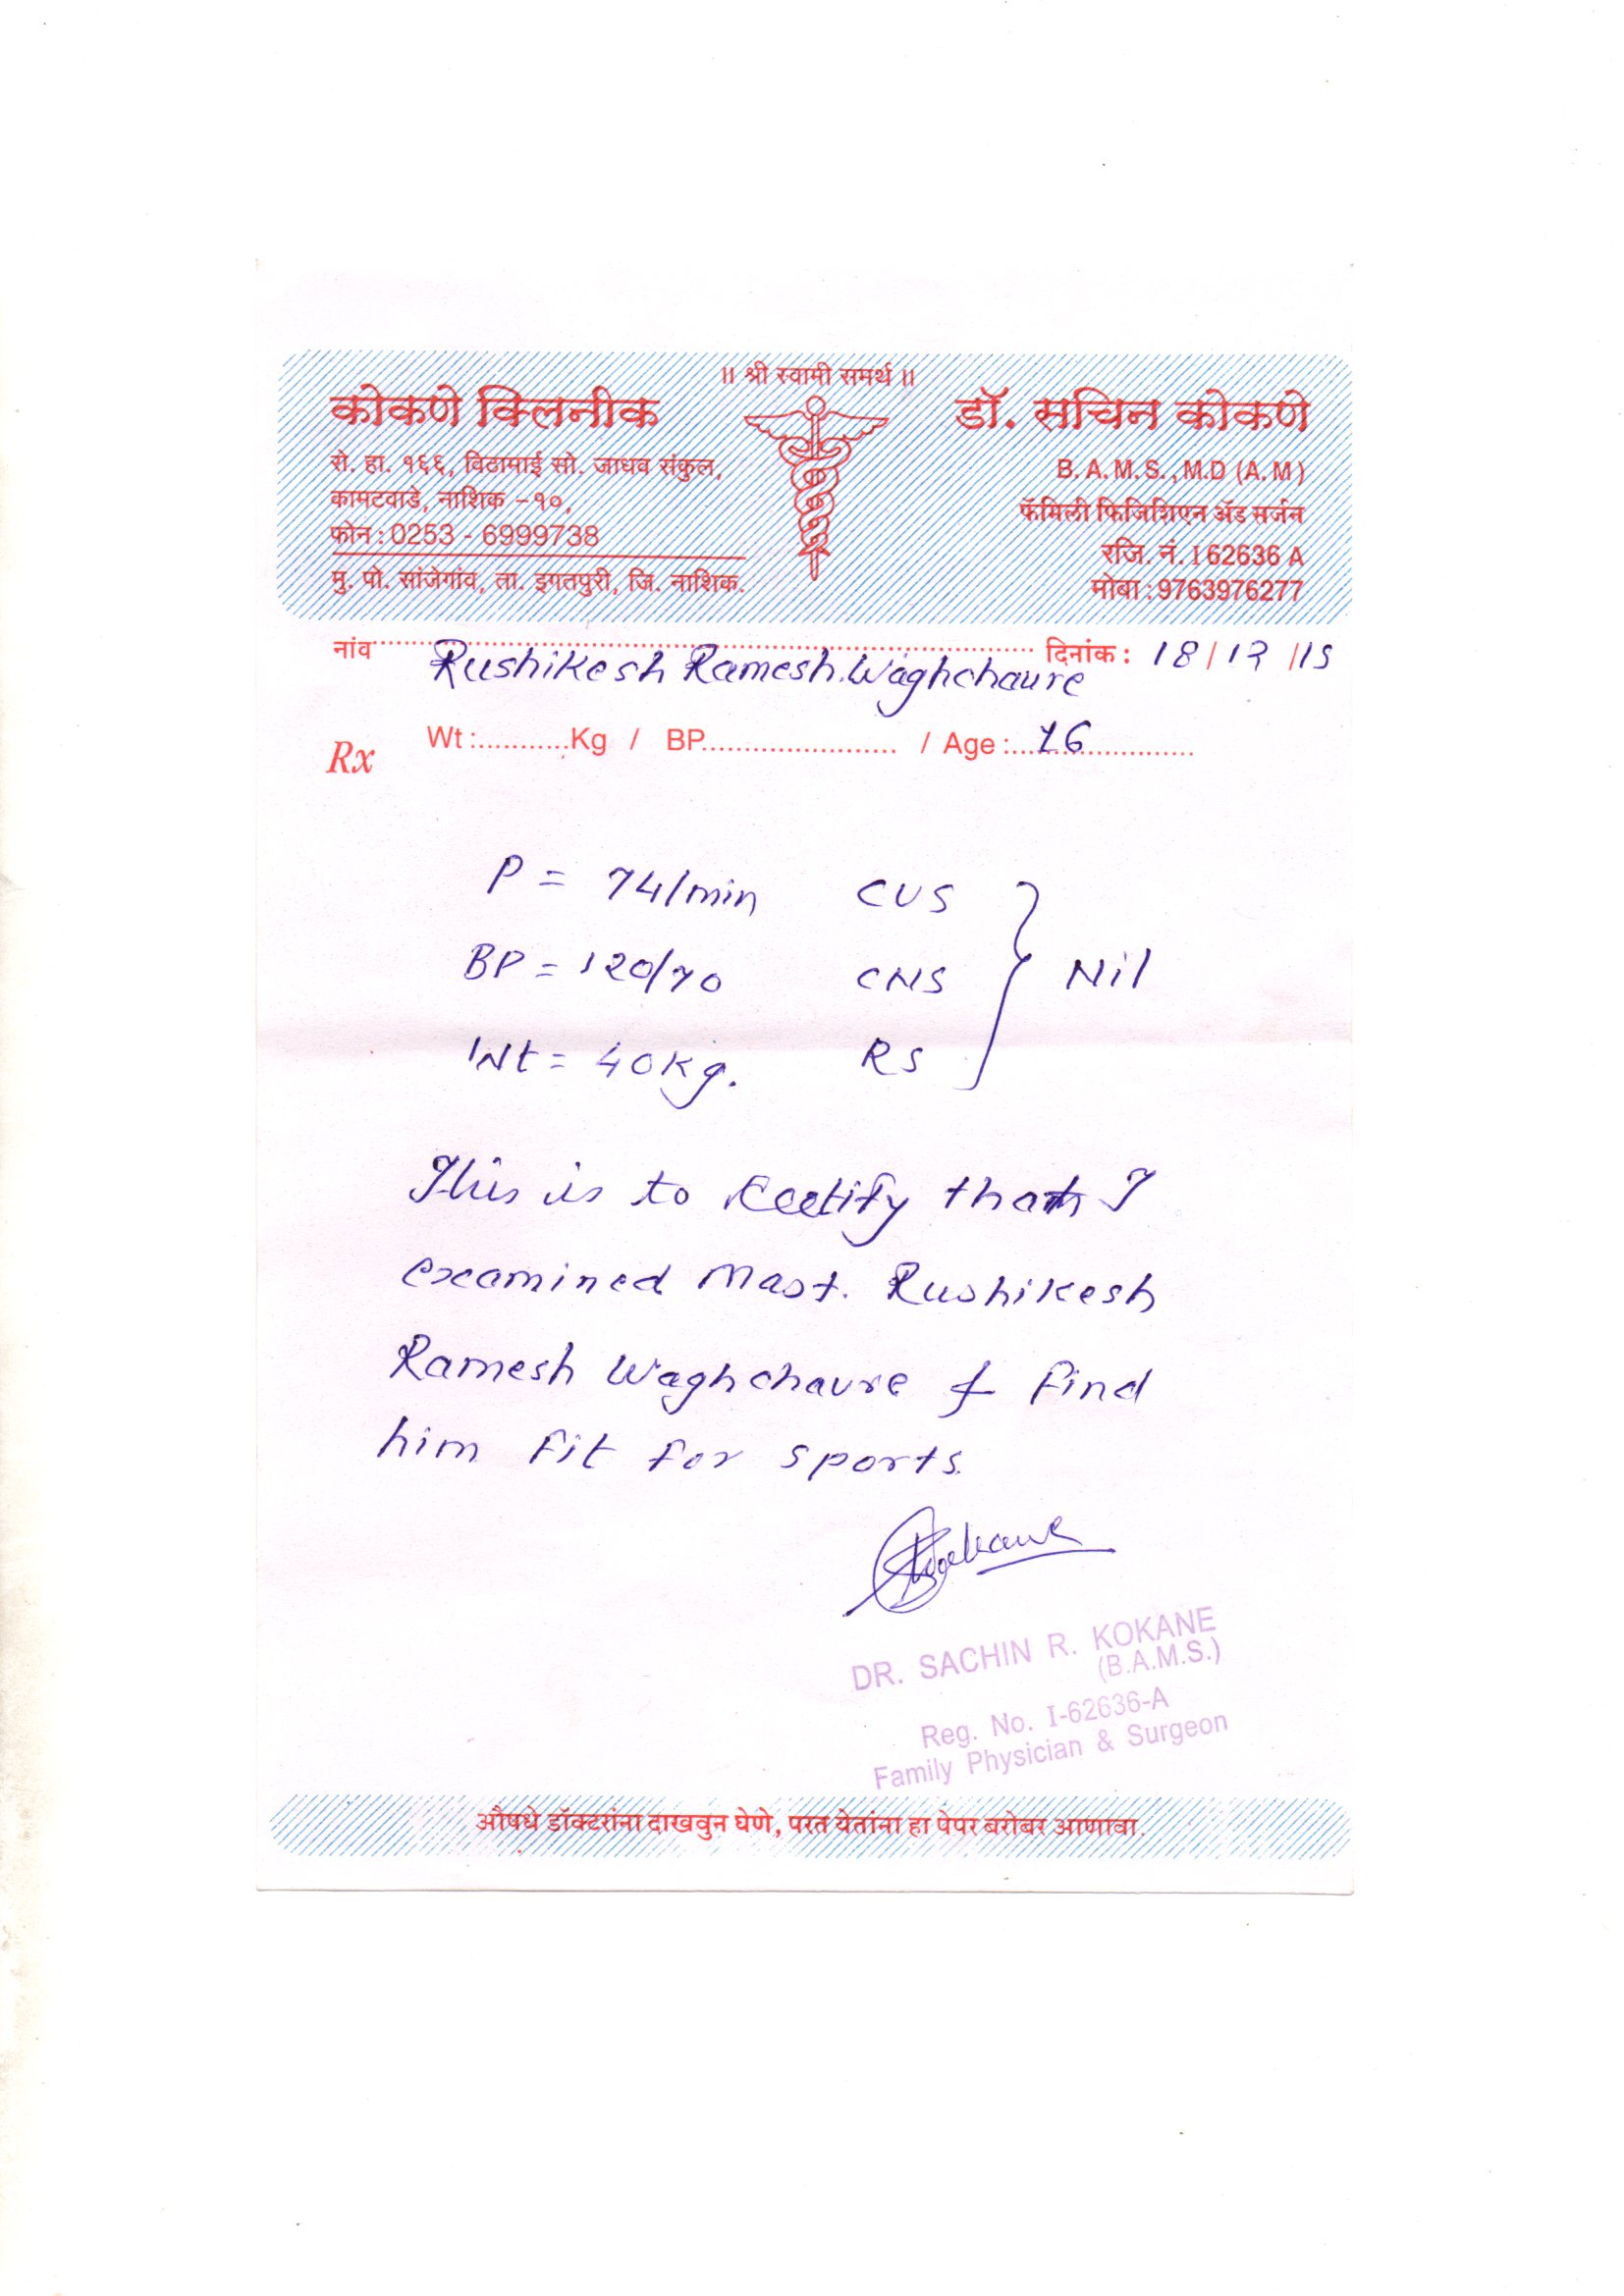 ॥ श्री स्वामी समर्थ ॥
कोकणे क्लिनीक
रो. हा. १६६, विठामाई सो. जाधव संकुल,
कामटवाडे, नाशिक -१०,
फोन : 0253 - 6999738
मु. पो. सांजेगांव, ता. इगतपुरी, जि. नाशिक.
डॉ. सचिन कोकणे
B.A.M.S.,M.D (A.M)
फॅमिली फिजिशिएन ॲंड सर्जन
रजि. नं. I 62636 A
मोबा : 9763976277
नांव Rushikesh Ramesh. Waghchaure दिनांक : 18/12/15
Rx Wt :...........Kg / BP........................ / Age :...16..............
P = 74/min CVS
BP = 120/70 CNS } Nil
Wt = 40Kg. RS
This is to Certify that I
examined Mast. Rushikesh
Ramesh Waghchaure & find
him fit for sports.
DR. SACHIN R. KOKANE
(B.A.M.S.)
Reg. No. I-62636-A
Family Physician & Surgeon
औषधे डॉक्टरांना दाखवुन घेणे, परत येतांना हा पेपर बरोबर आणावा.